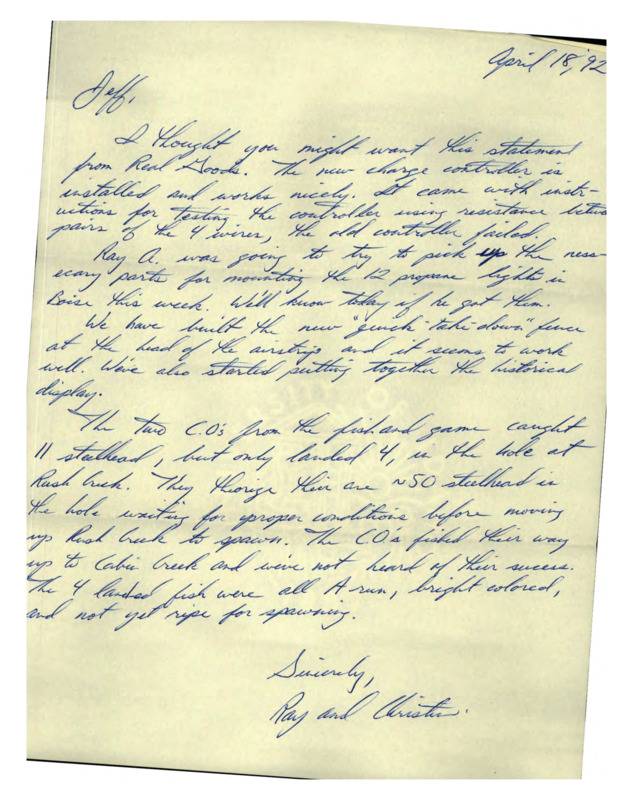 April 18, '92
Jeff,
I thought you might want this statement
from Real Goods. The new charge controller is
installed and works nicely. It came with instr-
uctions for testing the controller using resistance betw
pairs of the 4 wires, the old controller failed.
Ray A. was going to try to pick up the ness-
ecary parts for mounting the 12 propane lights in
Boise this week. We'll know today if he got them.
We have built the new "quick-take-down" fence
at the head of the airstrip and it seems to work
well. We've also started putting together the historical
display.
The two C.O's from the fish and game caught
11 steelhead, but only landed 4, in the hole at
Rush Creek. They theorize their are ~50 steelhead in
the hole waiting for proper conditions before moving
up Rush Creek to spawn. The CO's fished their way
up to Cabin Creek and we've not heard of their sucess.
The 4 landed fish were all A run, bright colored,
and not yet ripe for spawning.
Sincerely,
Ray and